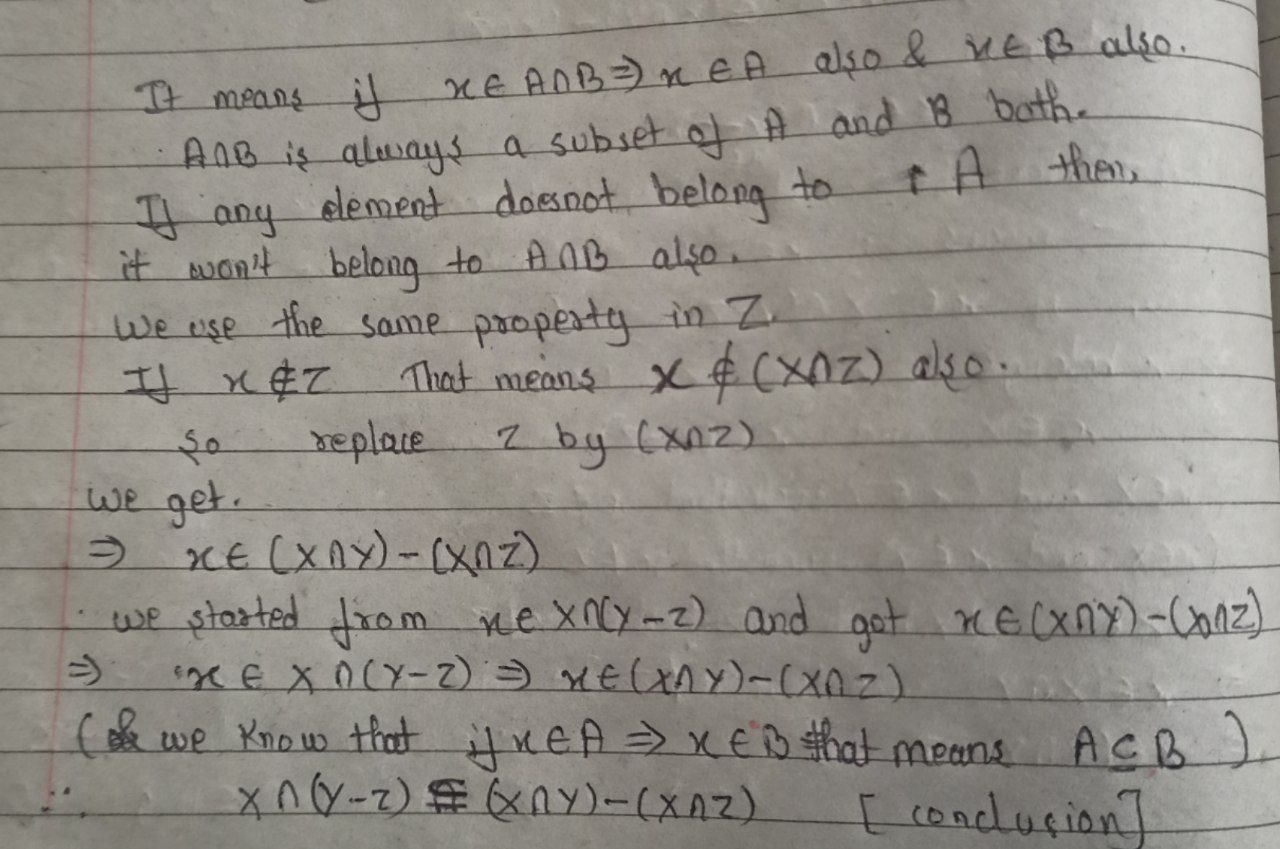 It means if x ∈ A∩B ⇒ x ∈ A also & x ∈ B also.
A∩B is always a subset of A and B both.
If any element doesnot belong to A then,
it won't belong to A∩B also.
We use the same property in Z.
If x ∉ Z That means x ∉ (X∩Z) also.
So replace Z by (X∩Z)
We get.
⇒ x ∈ (X∩Y) - (X∩Z)
we started from x ∈ X∩(Y-Z) and got x ∈ (X∩Y)-(X∩Z)
⇒ x ∈ X∩(Y-Z) ⇒ x ∈ (X∩Y)-(X∩Z)
( we know that if x ∈ A ⇒ x ∈ B that means A ⊆ B )
∴ X∩(Y-Z) ⊆ (X∩Y)-(X∩Z) [ conclusion]